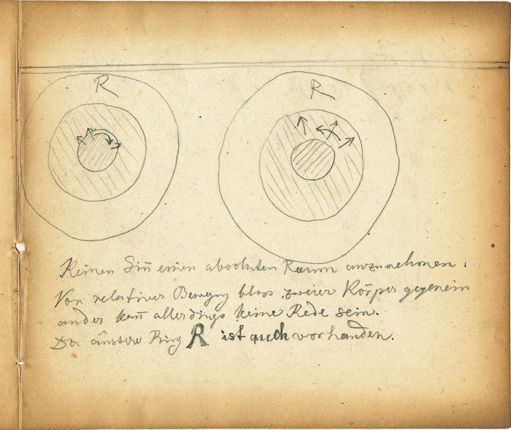 R R
Keinen Siñ einen absoluten Raum anzunehmen.
Von relativer Bewegg bloss zweier Körper gegenein
ander kañ allerdings keine Rede sein.
Der äussere Ring R ist auch vorhanden.